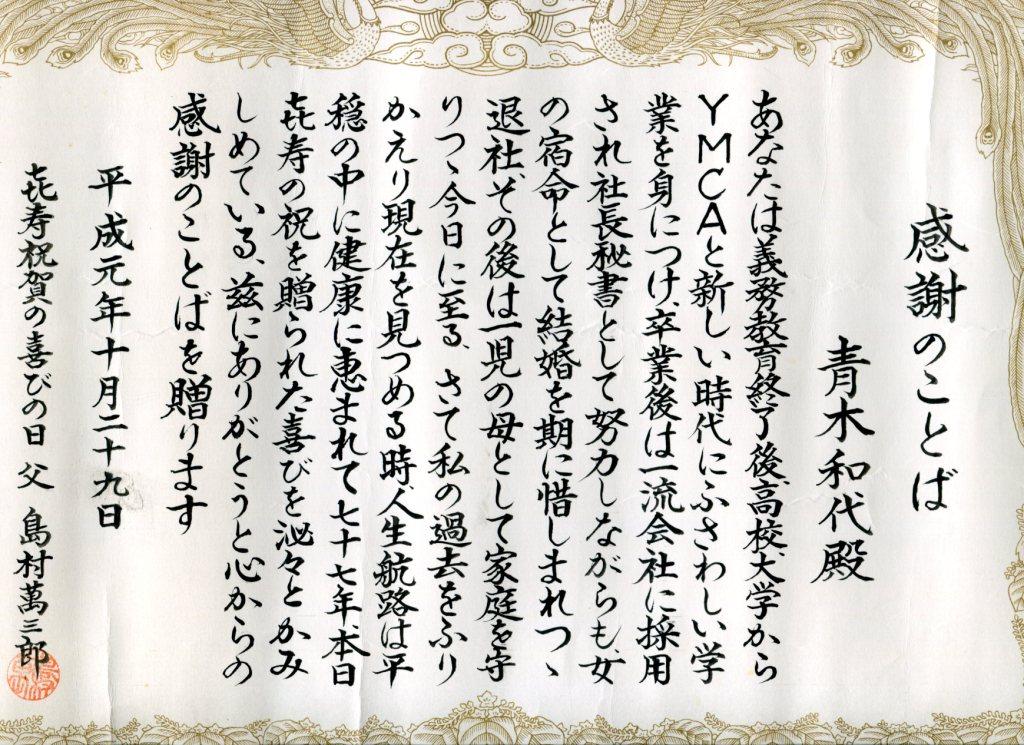 感謝のことば
青木和代殿
あなたは義務教育終了後、高校、大学から
YMCAと新しい時代にふさわしい学
業を身につけ、卒業後は一流会社に採用
され社長秘書として努力しながらも、女
の宿命として結婚を期に惜しまれつゝ
退社、その後は一児の母として家庭を守
りつゝ今日に至る、さて私の過去をふり
かえり現在を見つめる時、人生航路は平
穏の中に健康に恵まれて七十七年、本日
㐂寿の祝を贈られた喜びを泌々とかみ
しめている、茲にありがとうと心からの
感謝のことばを贈ります
平成元年十月二十九日
㐂寿祝賀の喜びの日 父 島村萬三郎